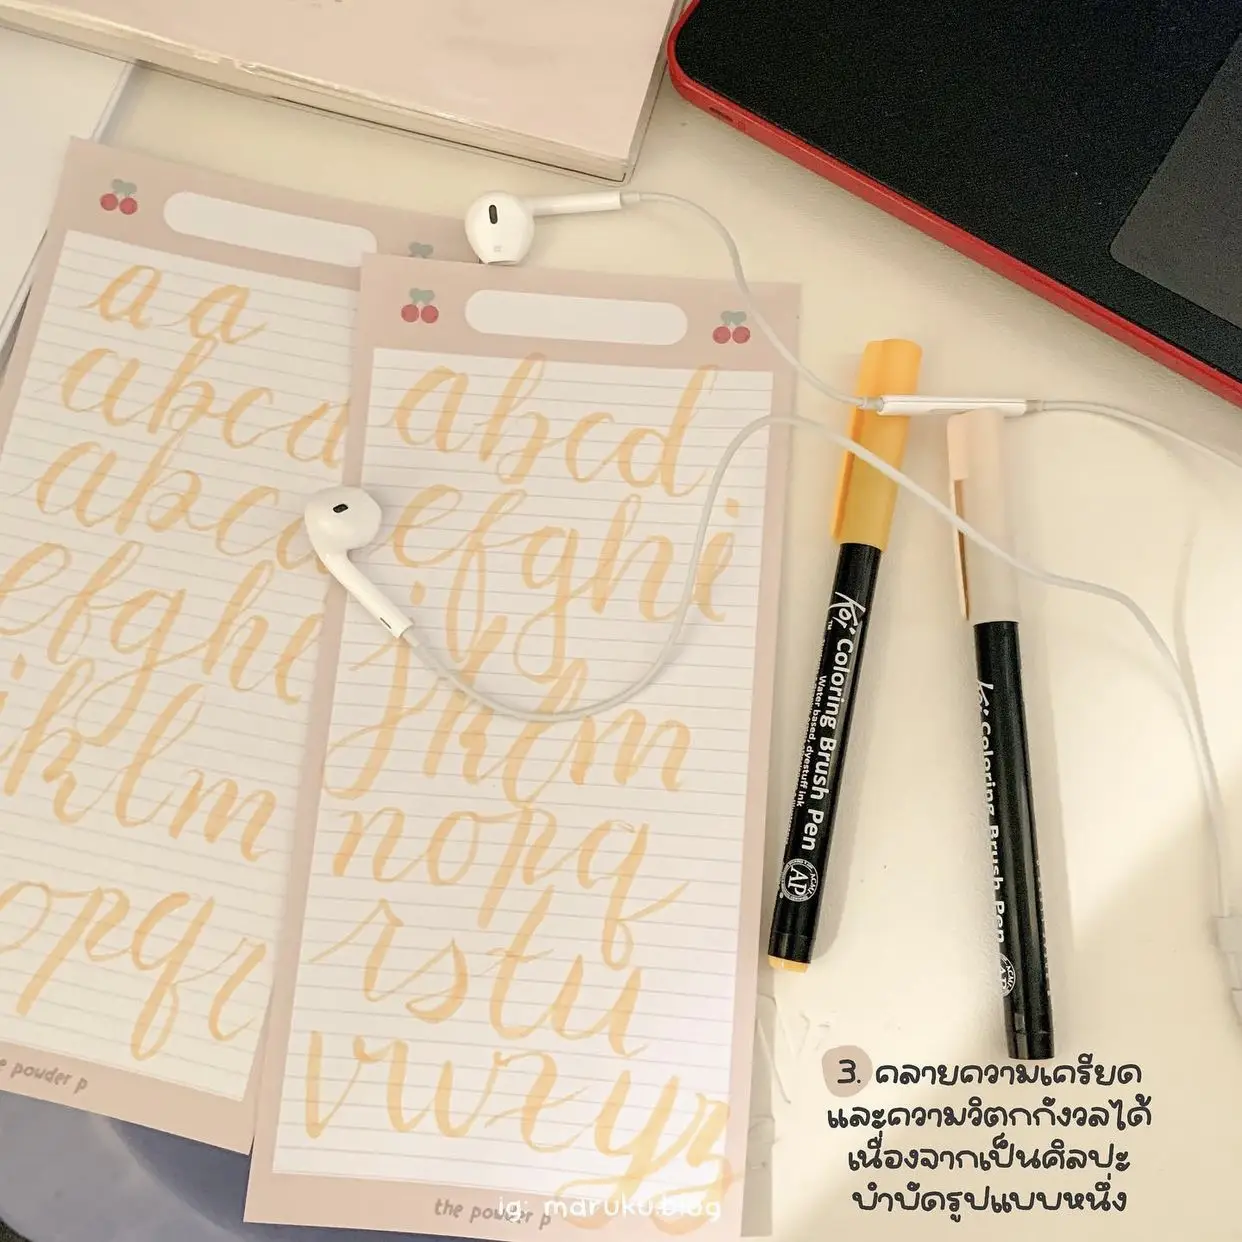 a a
abcd
abcd
efghi
jklm
opqr
the powder p
abcd
efghi
jklm
nopq
rstu
vwxyz
the powder p
ig: maruku.blog
Koi Coloring Brush Pen
Water based, dyestuff ink
AP
Koi Coloring Brush Pen
AP
3. คลายความเครียด
และความวิตกกังวลได้
เนื่องจากเป็นศิลปะ
บำบัดรูปแบบหนึ่ง